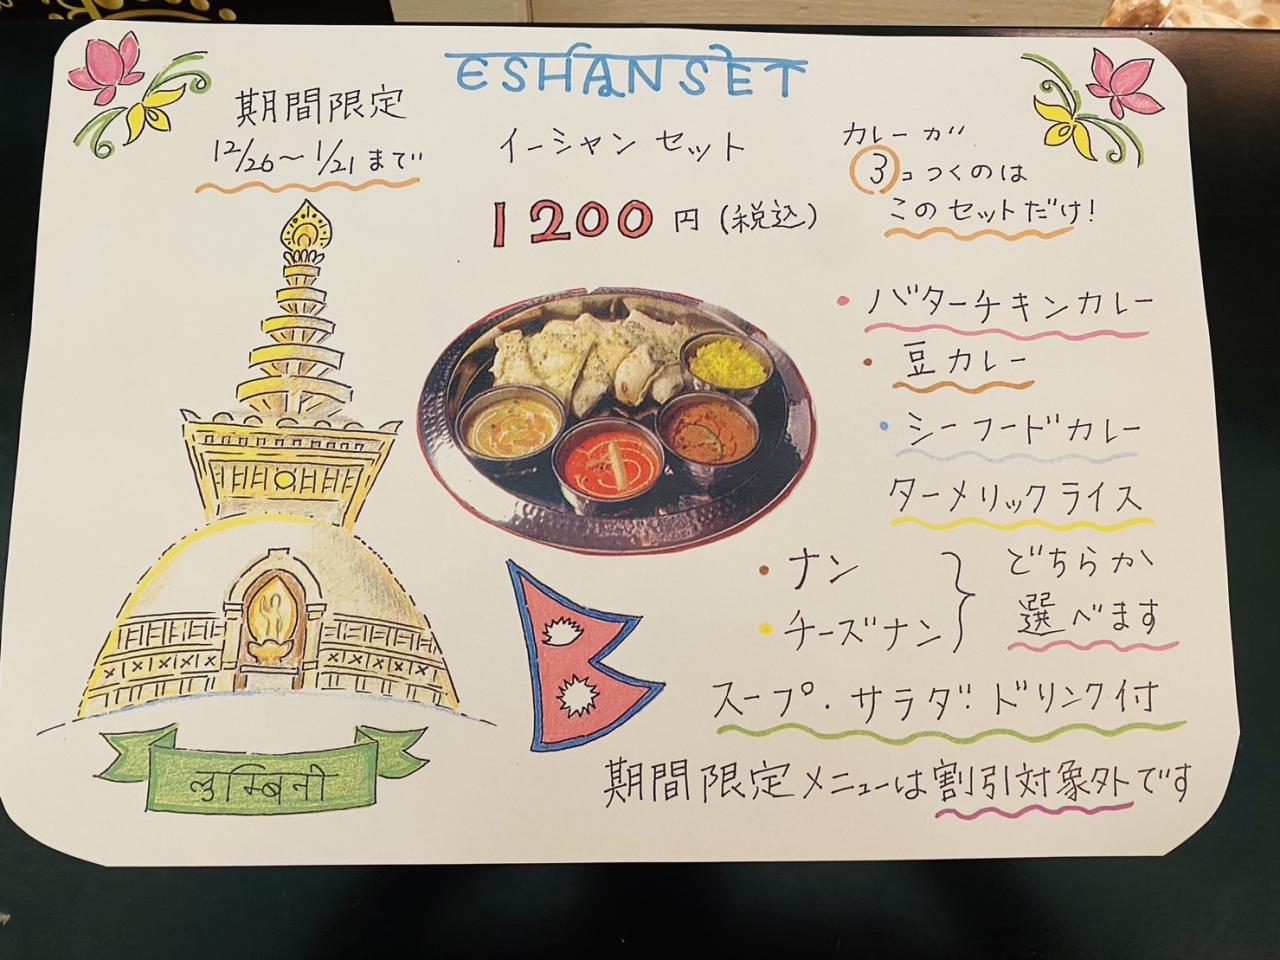 ESHANSET
期間限定
12/26〜1/21まで
イーシャンセット
1200円(税込)
カレーが
3コつくのは
このセットだけ!
・バターチキンカレー
・豆カレー
・シーフードカレー
ターメリックライス
・ナン
・チーズナン
どちらか
選べます
スープ・サラダ・ドリンク付
लुम्बिनी
期間限定メニューは割引対象外です